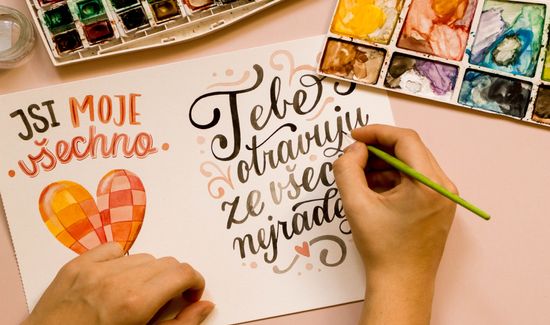 JSI MOJE
všechno
Tebe
otravuju
ze všec
nejradě